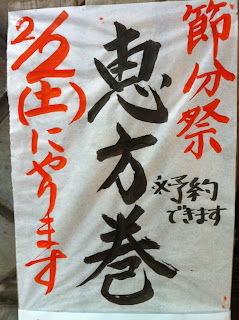 節分祭
恵方巻
※予約
できます
2/2(土)にやります